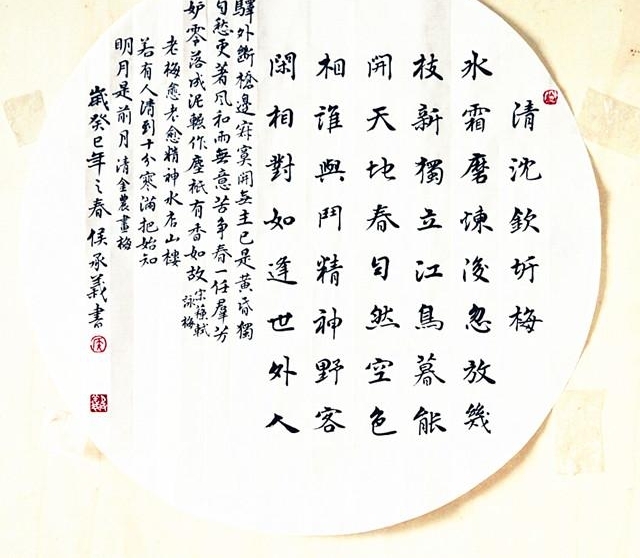 清沈欽圻梅
氷霜磨煉後忽放幾
枝新獨立江鳥暮能
開天地春自然空色
相誰與鬥精神野客
閑相對如逢世外人
驛外斷橋邊寂寞開無主已是黃昏獨
自愁更著風和雨無意苦争春一任羣芳
妒零落成泥輾作塵祇有香如故
宋蘇軾
詠梅
老梅愈老愈精神水店山樓
若有人清到十分寒滿把始知
明月是前月清金農畫梅
歲癸巳年之春侯承義書